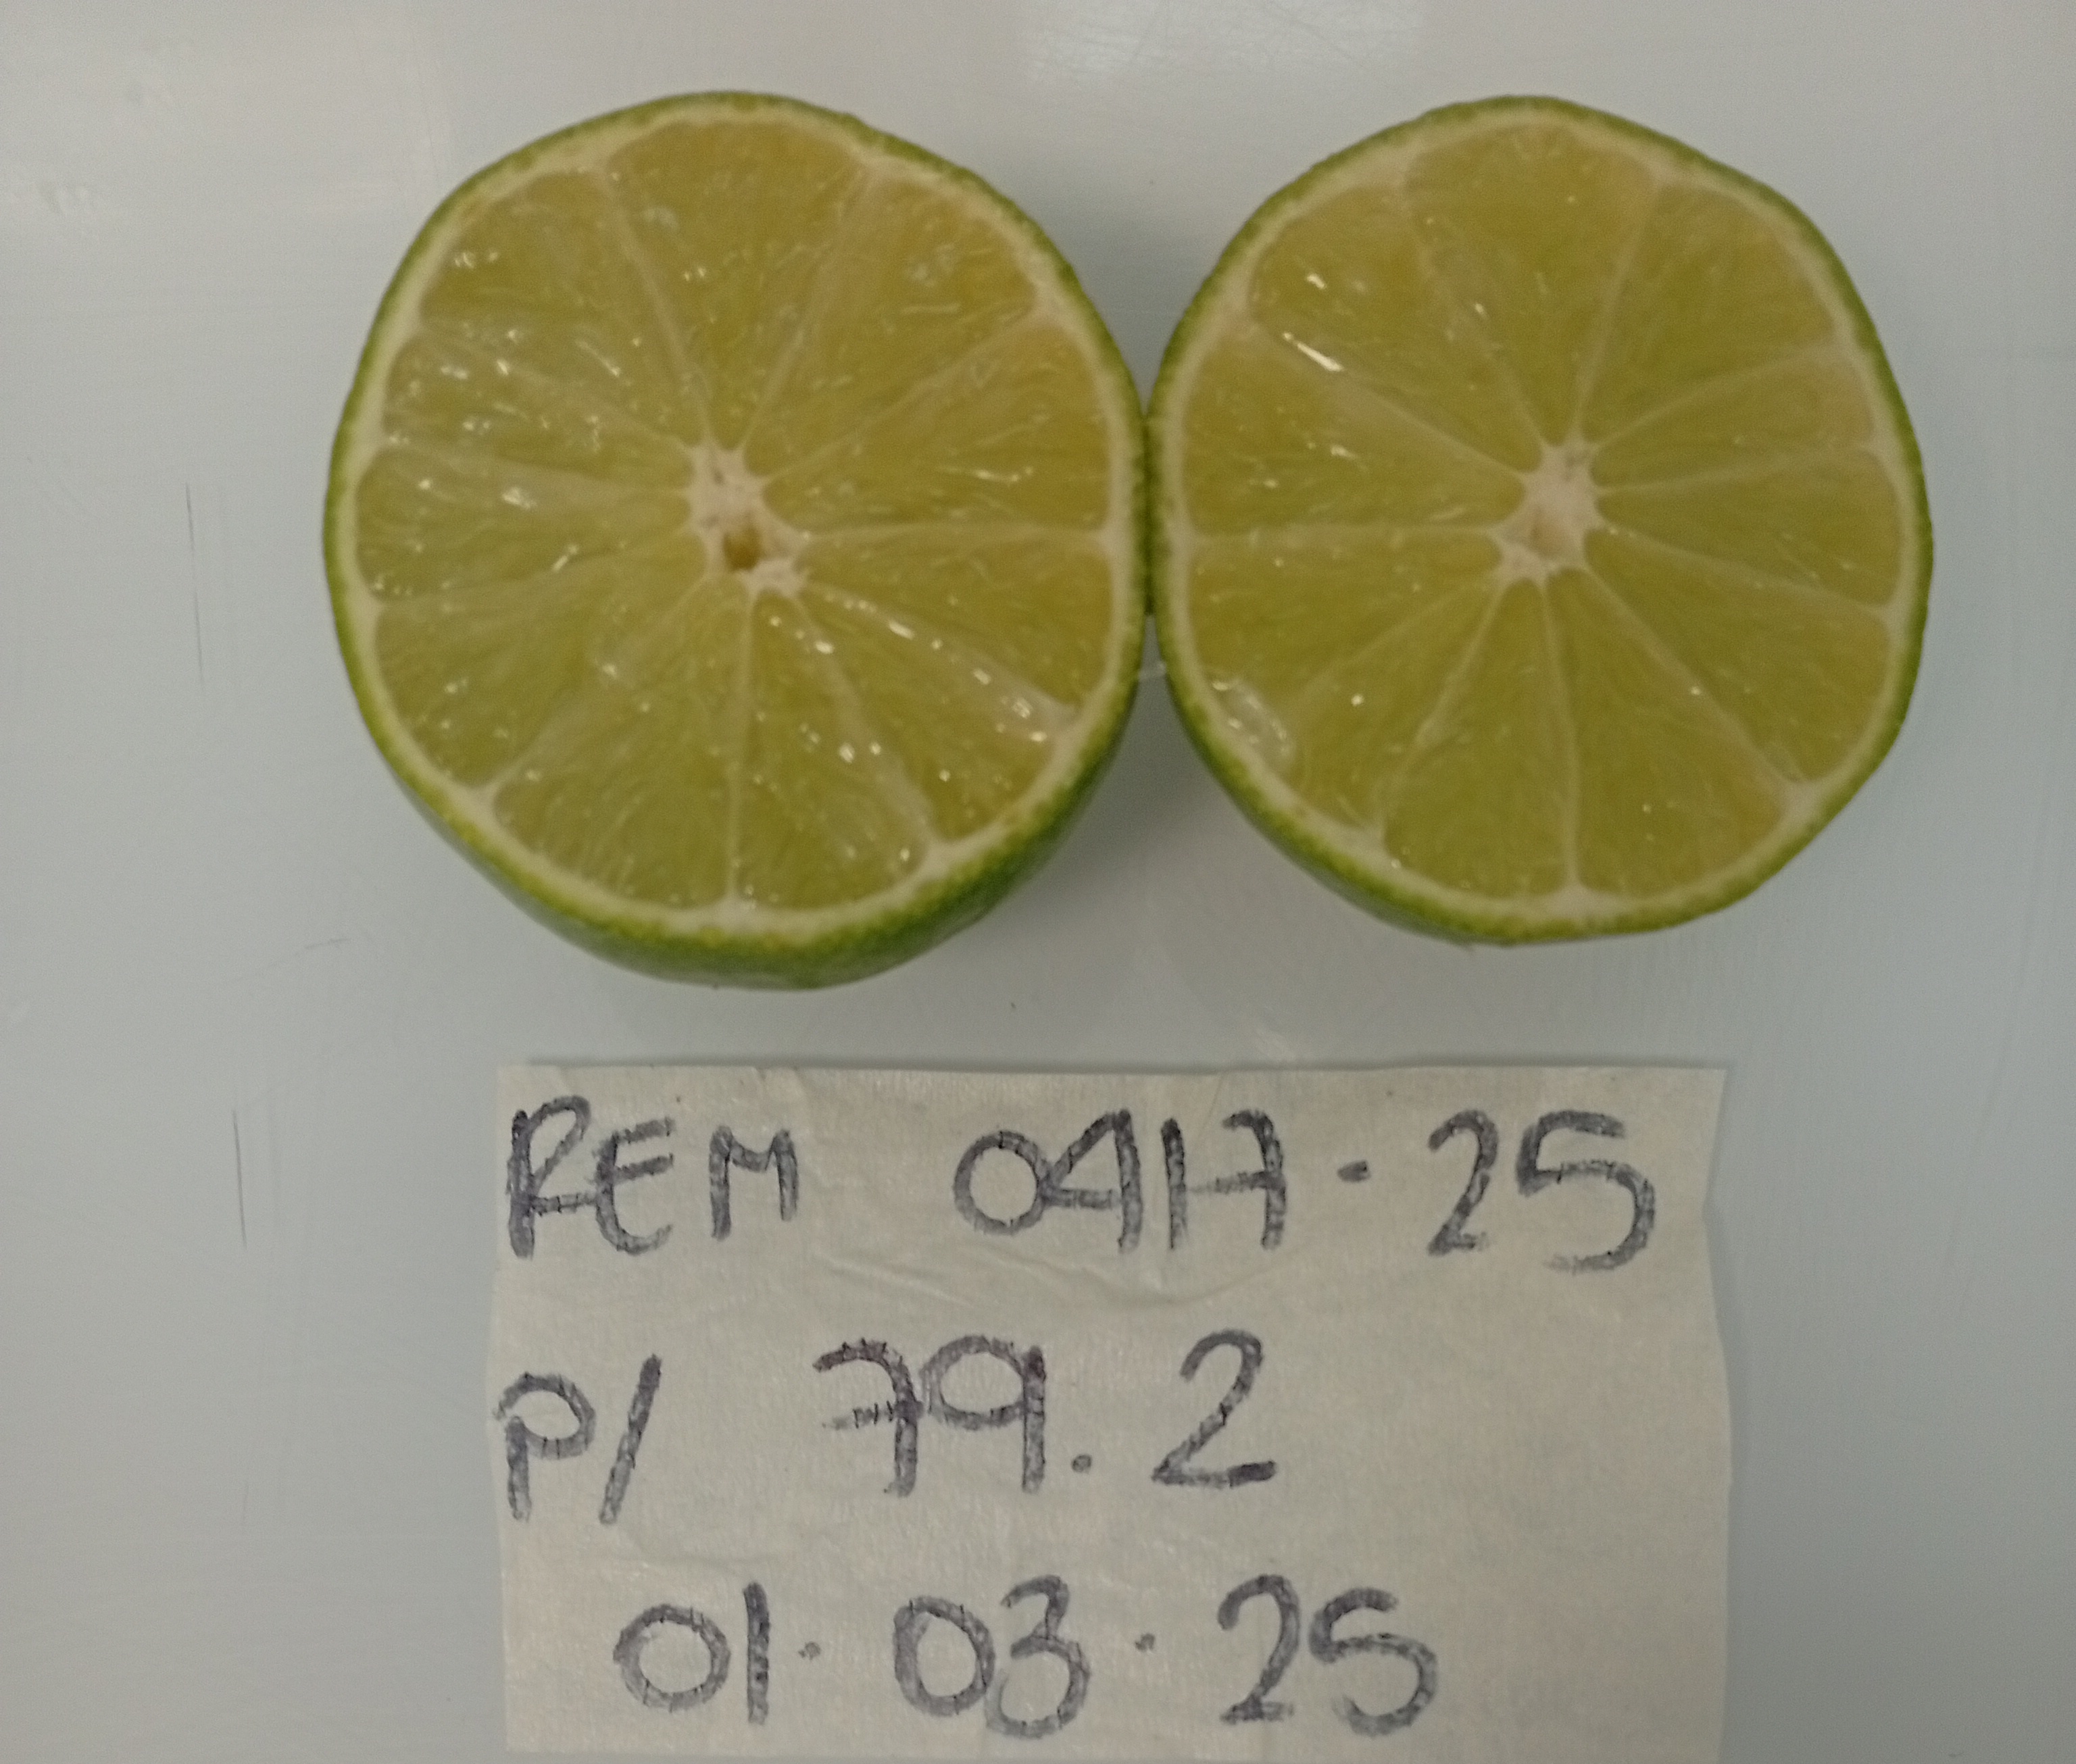 REM 0417-25
P/ 79.2
01·03·25